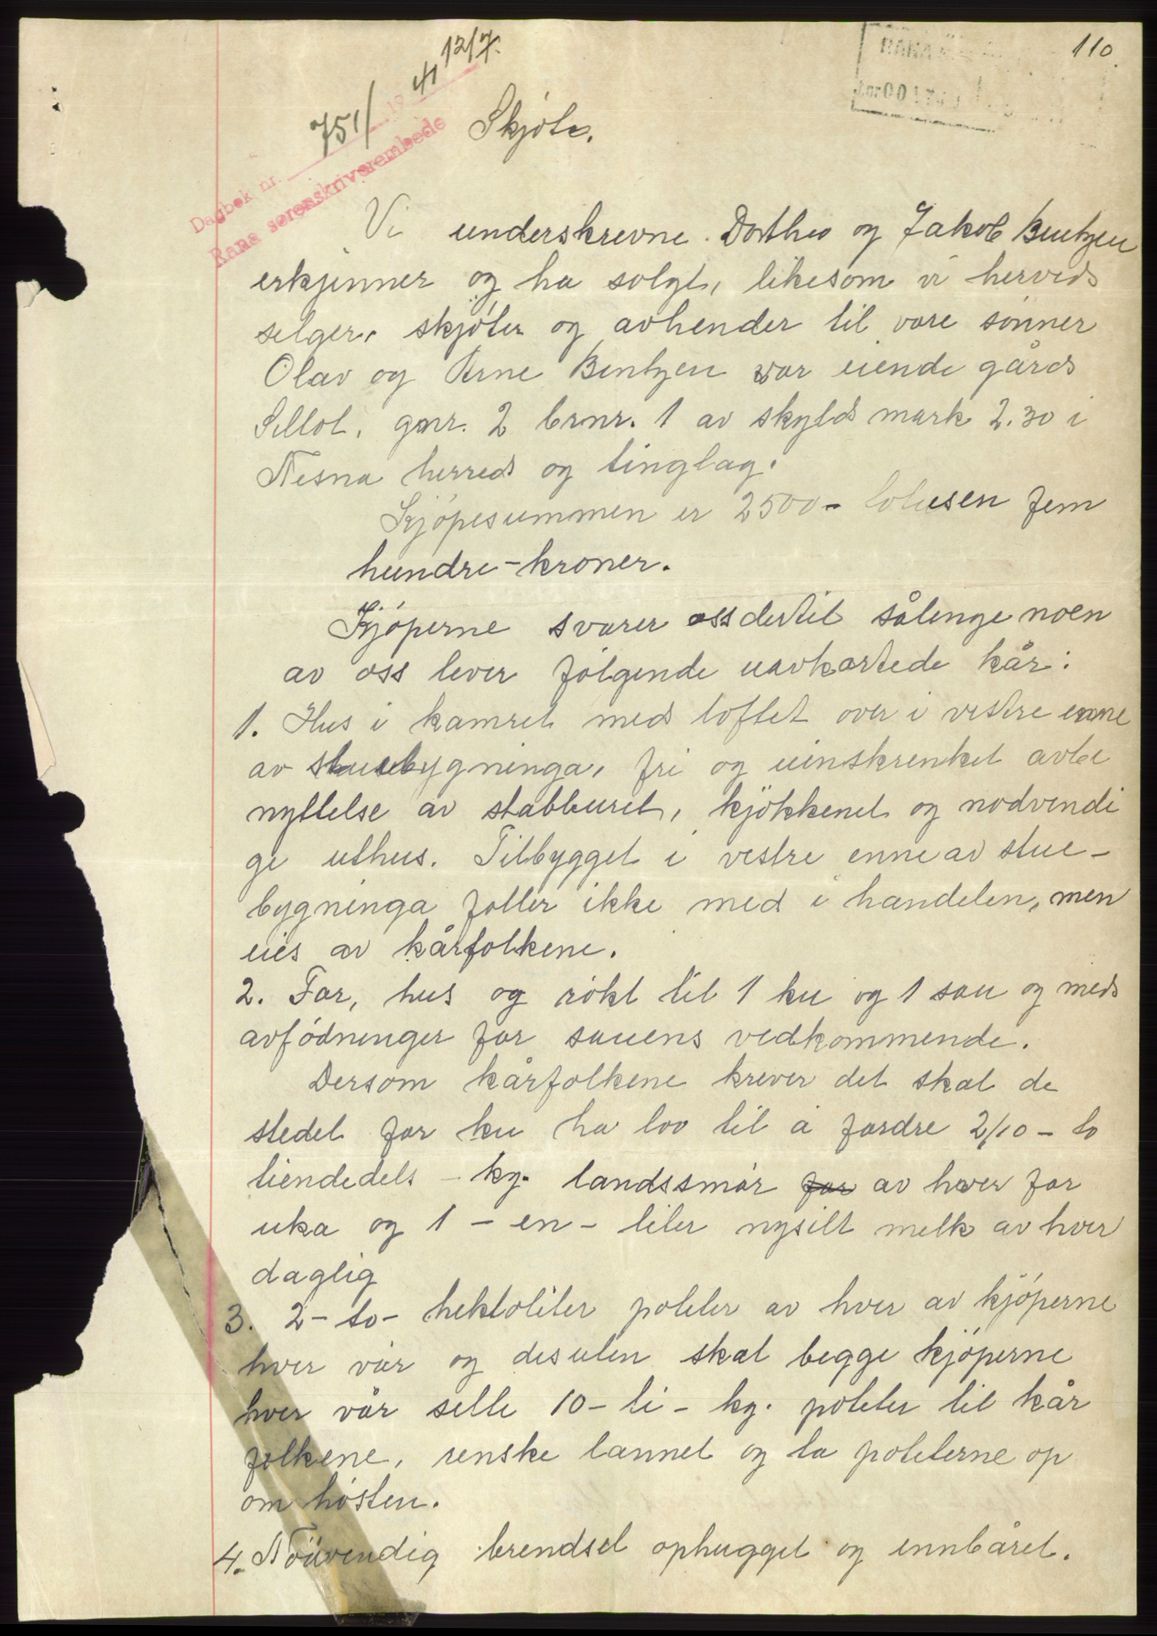 110.
12/7.
Dagbok nr. 751/ 1941
Rana sorenskriverembede
Skjöte.
Vi underskrevne Dorthea og Jakob Bentzen
erkjenner og ha solgt, likesom vi herved
selger, skjöter og avhender til våre sönner
Olav og Arne Bentzen vår eiende gård
gnr. 2 brnr. 1 av skyld mark 2.30 i
Nesna herred og tinglag.
Kjöpesummen er 2500 - totusen fem
hundre-kroner.
Kjöperne svarer oss dertil sålenge noen
av oss lever fölgende uavkortede kår:
1. Hus i kamret med loftet over i vestre enne
av stuebygninga, fri og uinskrenket avbe
nyttelse av stabburet, kjökkenet og nodvendi
ge uthus. Tilbygget i vestre enne av stue-
bygninga foller ikke med i handelen, men
eies av kårfolkene.
2. For, hus og rökt til 1 ku og 1 sau og med
avfödninger for sauens vedkommende.
Dersom kårfolkene krever det skal de
stedet for ku ha lov til å fordre 2/10 - to
tiendedels - kg. landssmör for av hver for
uka og 1 - en - liter nysilt melk av hver
daglig
3. 2 - to - hektoliter poteter av hver av kjöperne
hver vår og desuten skal begge kjöperne
hver vår sette 10 - ti - kg. poteter til kår
folkene, renske lannet og ta poteterne op
om hösten.
4. Nödvendig brendsel ophugget og innbåret.